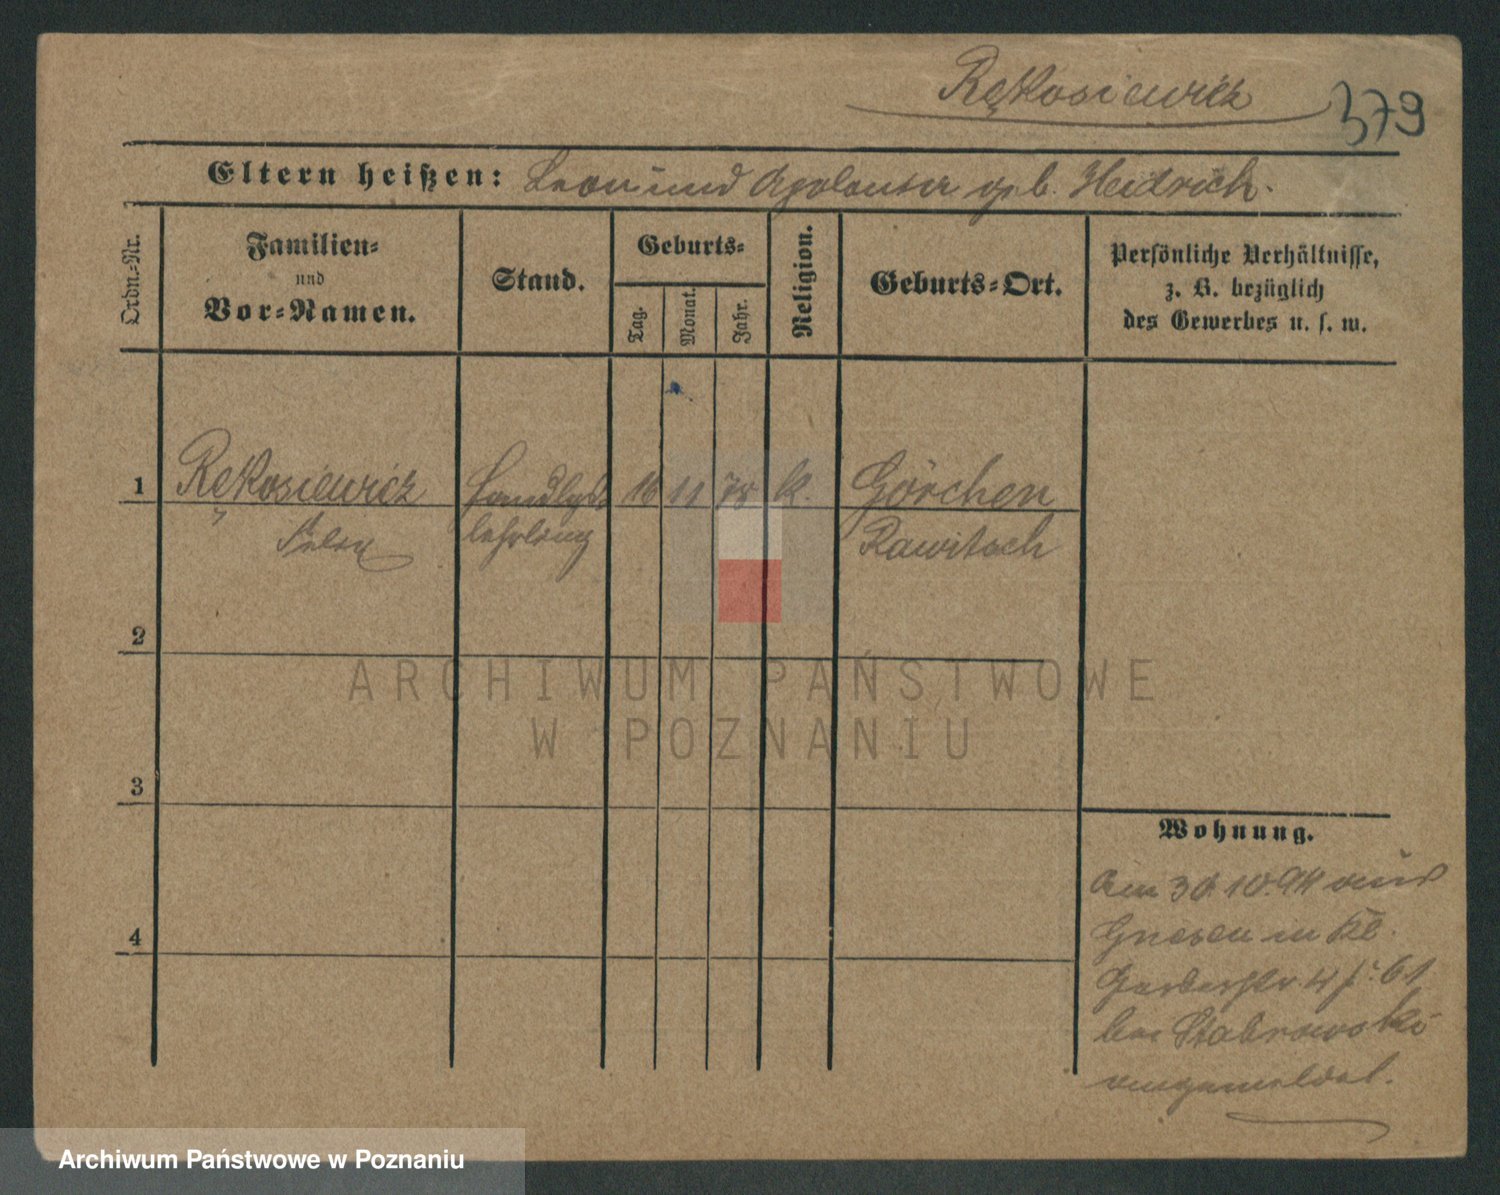 Rękosiewicz
379
Eltern heißen: Leon und Apolonia geb. Heidrich.
Ordn.-Nr.
Familien-
und
Vor-Namen.
Stand.
Geburts-
Tag.
Monat.
Jahr.
Religion.
Geburts-Ort.
Persönliche Verhältnisse,
z. B. bezüglich
des Gewerbes u. s. w.
1 Rękosiewicz Handlgs 16 11 78 k. Görchen
Felix lehrling Rawitsch
2
ARCHIWUM PAŃSTWOWE
W POZNANIU
3
Wohnung.
Am 30.10.94 aus
Gnesen in Kl.
Gerberstr. 4 61
bei Stabrowski
angemeldet.
4
Archiwum Państwowe w Poznaniu